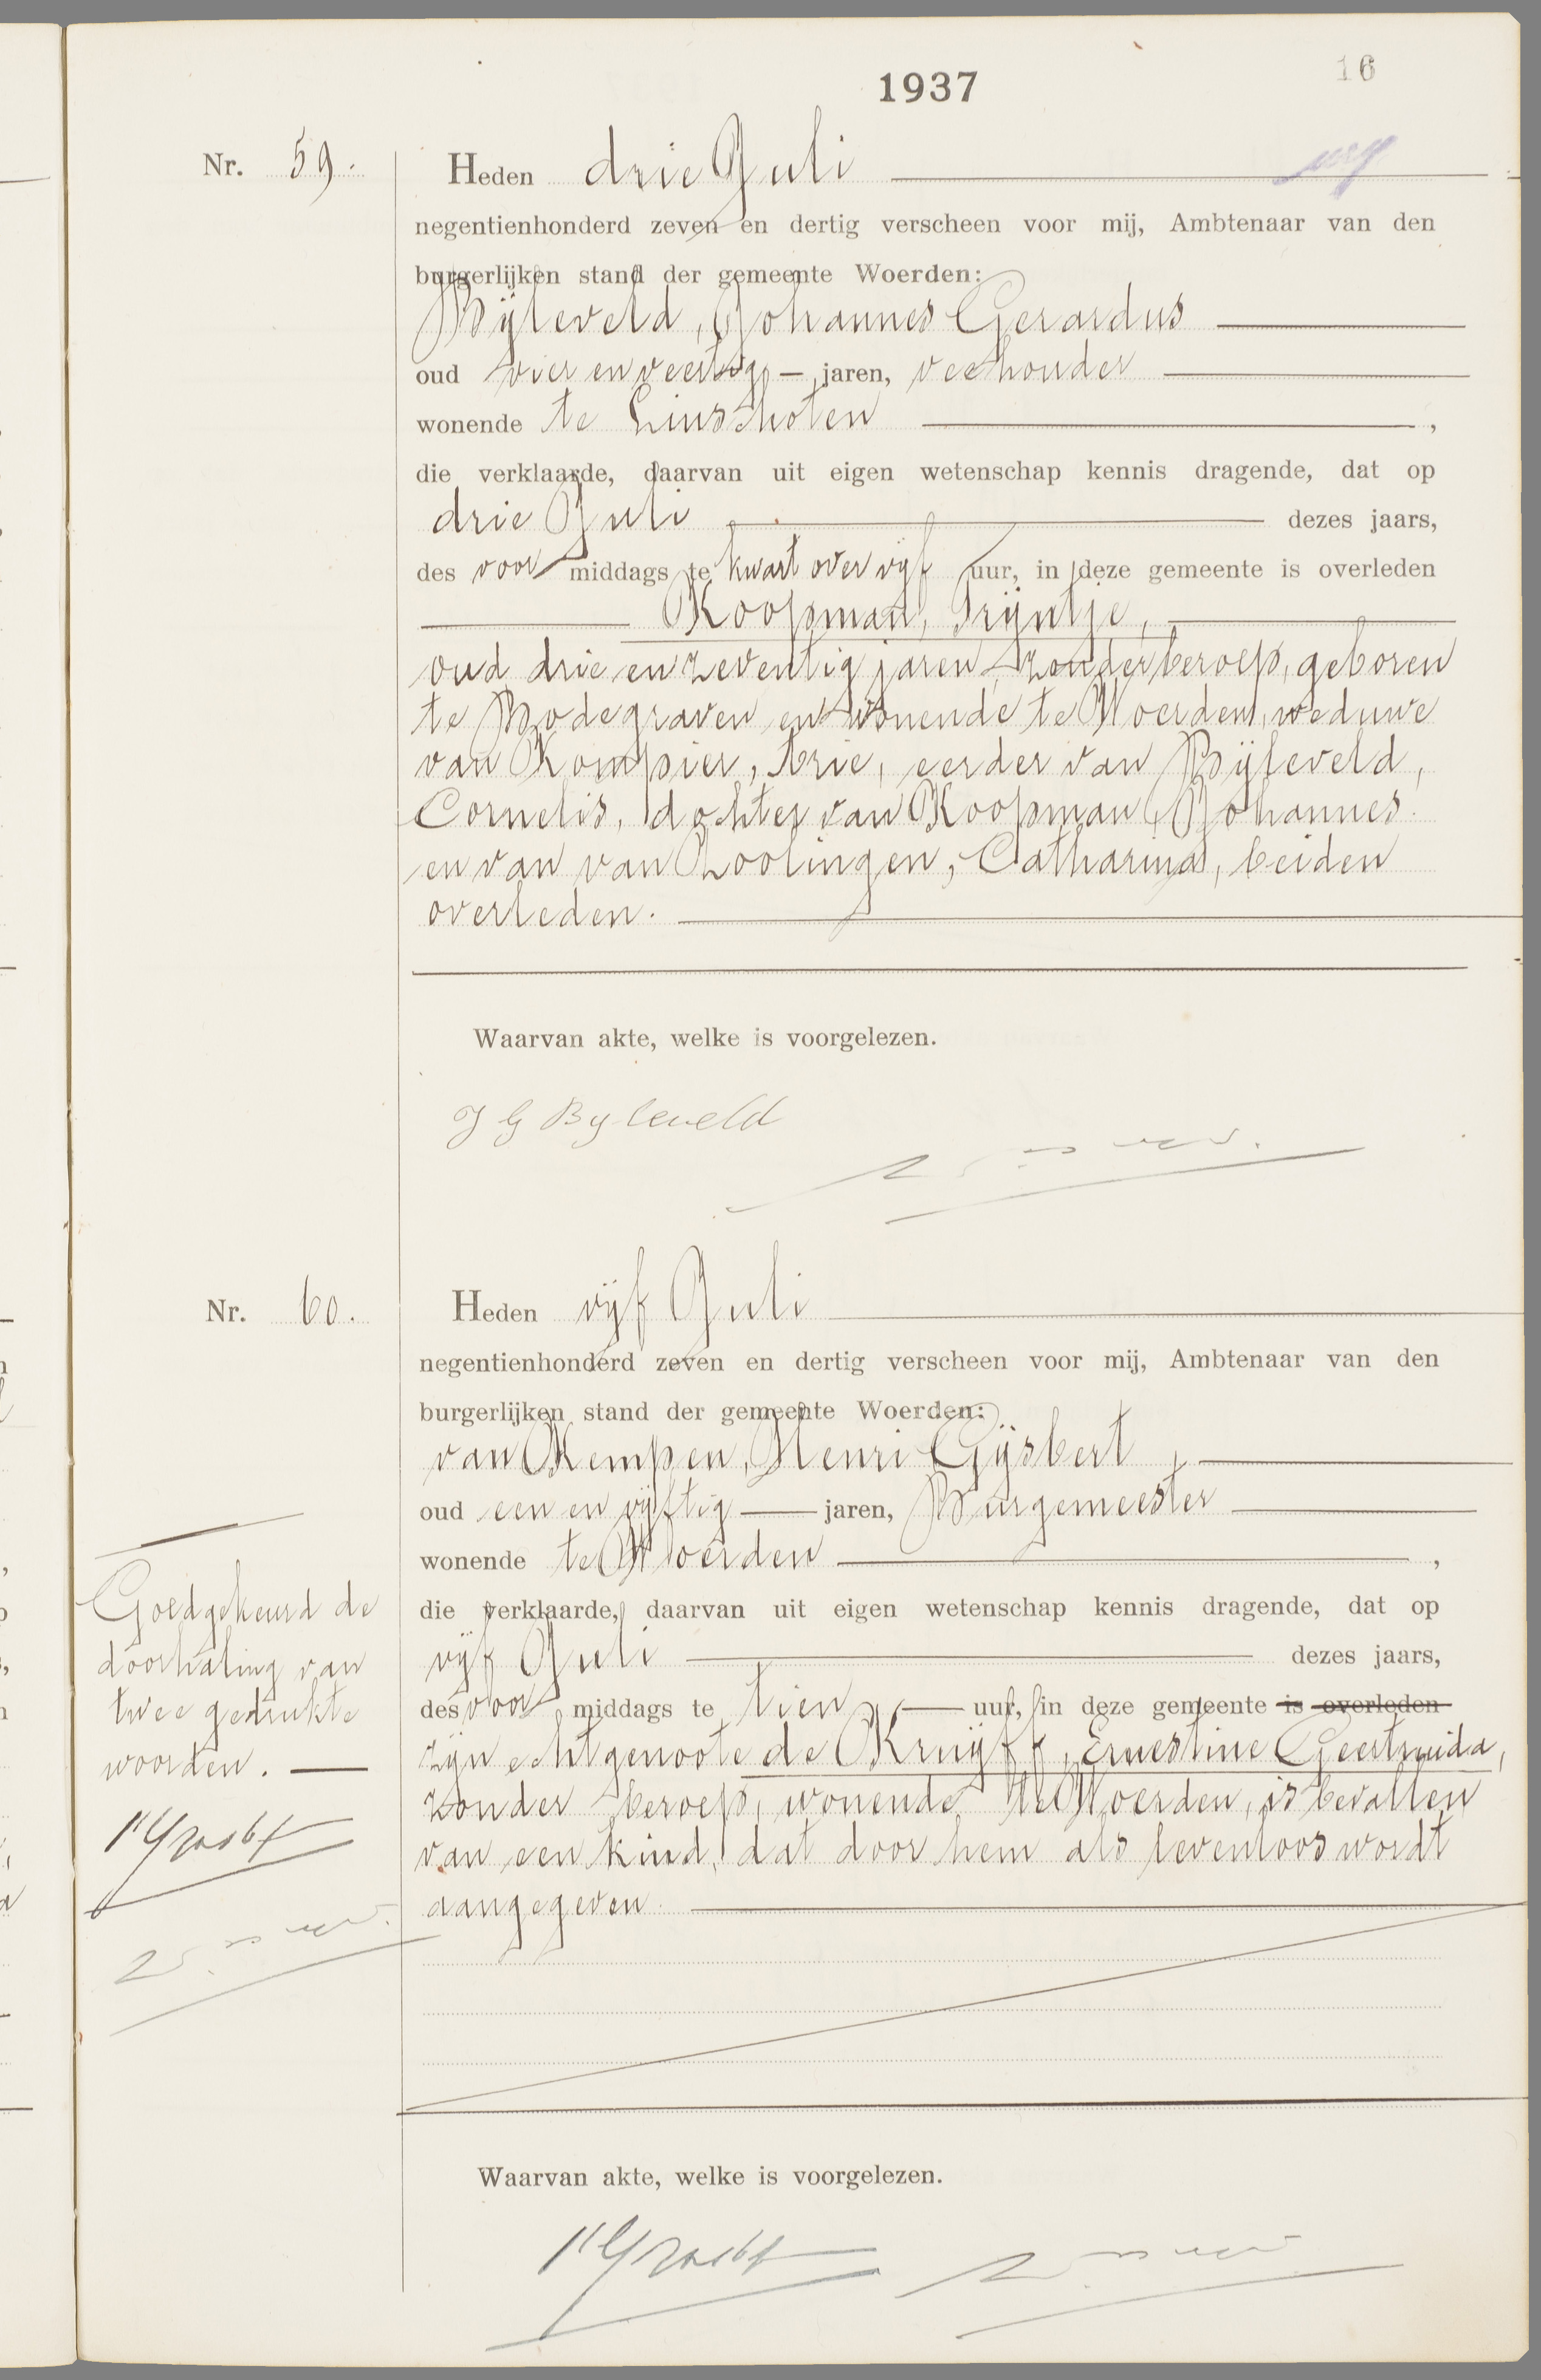 1937
16
Nr. 59.
Heden drie Juli
negentienhonderd zeven en dertig verscheen voor mij, Ambtenaar van den
burgerlijken stand der gemeente Woerden:
Bijleveld, Johannes Gerardus
oud vier en veertig — jaren, veehouder
wonende te Linschoten ,
die verklaarde, daarvan uit eigen wetenschap kennis dragende, dat op
drie Juli dezes jaars,
des voor middags te kwart over vijf uur, in deze gemeente is overleden
Koopman, Trijntje,
oud drie en zeventig jaren, zonder beroep, geboren
te Bodegraven en wonende te Woerden, weduwe
van Kompier, Arie, eerder van Bijleveld,
Cornelis, dochter van Koopman, Johannes
en van van Zoolingen, Catharina, beiden
overleden.
Waarvan akte, welke is voorgelezen.
J G Byleveld
Nr. 60.
Heden vijf Juli
negentienhonderd zeven en dertig verscheen voor mij, Ambtenaar van den
burgerlijken stand der gemeente Woerden:
van Kempen, Henri Gijsbert,
oud een en vijftig — jaren, Burgemeester
wonende te Woerden ,
die verklaarde, daarvan uit eigen wetenschap kennis dragende, dat op
vijf Juli dezes jaars,
des voor middags te tien — uur, in deze gemeente is overleden
zijn echtgenoote de Kruijff, Ernestine Geertruida,
zonder beroep, wonende te Woerden, is bevallen
van een kind, dat door hem als levenloos wordt
aangegeven.
Goedgekeurd de
doorhaling van
twee gedrukte
woorden. —
Waarvan akte, welke is voorgelezen.